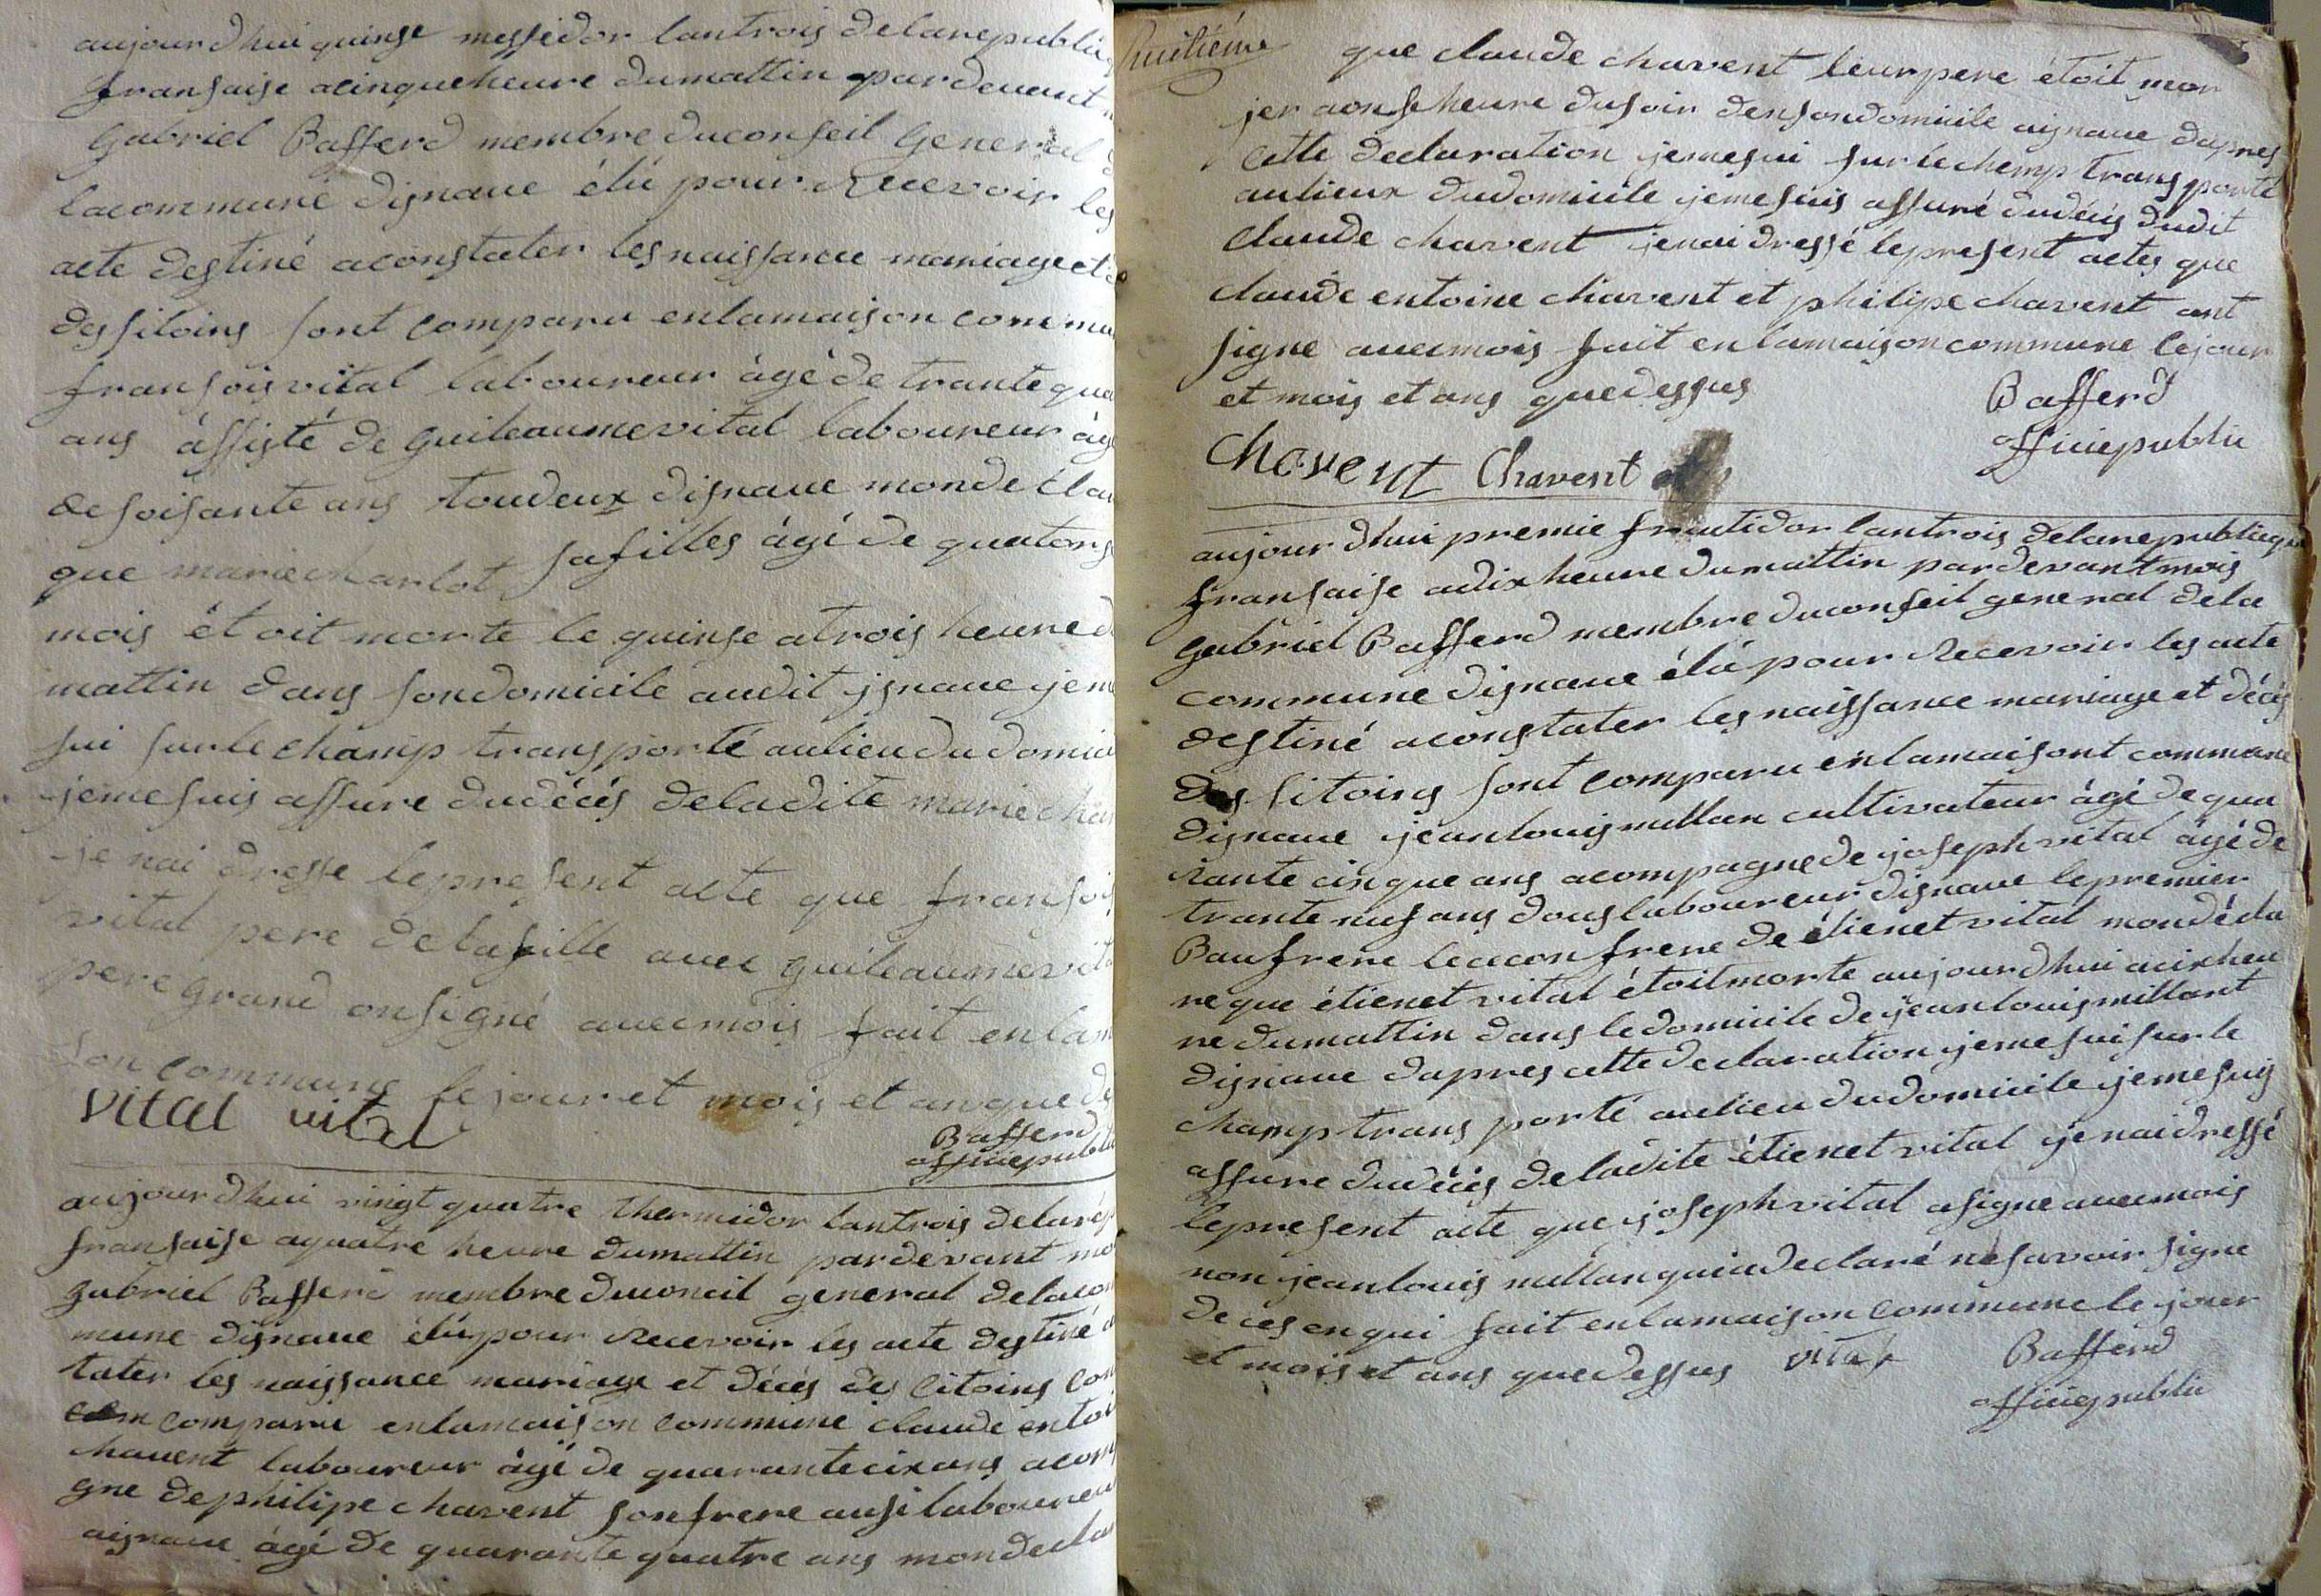 aujourdhui quinse messidor lantrois delarepublic
fransaise acinqueheure dumattin pardevent
gabriel Bafferd membre duconseil general
lacommune dignaue élú pour Recevoir les
acte destiné aconstater lesnaissance mariageet
dessitoins sont comparu enlamaison commu
fransois vital laboureur àgé de trante qua
ans àssisté de guileaumevital laboureur àg
de soisante ans toudeux dignaue mondé clau
que mariecharlot safilles àgé de quatorse
mois étoit morte le quinse atrois heure d
mattin dans sondomicile audit ignaue jem
sui surlechamp transporté aulieu du domic
jemesuis assure dudécés deladite marie char
jenai dresse lepresent acte que fransois
vital pere delafille avec guileaumevita
pere grand onsigné avecmois fait enlam
son commune lejour et mois et anque de
vital vital
Bafferd
officiepublic
aujourdhui vingt quatre thermidor lantrois delarép
fransaise aquatre heure dumattin pardevant mo
gabriel Bafferd membre duconcil general delacom
mune dignaue élúpour Recevoir les acte destiné a
tater les naissance mariage et décés des citoins con
comparu enlamaison commune claude entoi
chavent laboureur àgé de quarantecixans acom
gne dephilipe chavent sonfrere ausi laboureur
aignaue àgé de quarante quatre ans mondecla
huitiéme que claude chavent leurpere étoit mor
jer aonseheure dusoir densondomicile aignaue dapres
cette declaration jemesui surlechemp transporté
aulieux dudomicile jemesuis assuré dudécés dudit
claude chavent jenai dressé lepresent actes que
claude entoine chavent et philipe chavent ont
signe avecmois fait enlamaisoncommune lejour
et mois et ans quedessus
Bafferd
officiepublic
chavent Chavent
aujourdhui premie fructidor lantrois delarepublique
fransaise adixheure dumattin pardevantmois
gabriel Bafferd membre duconseil general dela
commune dignaue élú pour Recevoir les acte
destiné aconstater lesnaissance mariage et décés
des sitoins sont comparu enlamaisont commune
dignaue jeanlouis millan cultivateur àgé de qua
rante cinque ans acompagne de joseph vital àgé de
trante neuf ans dous laboureur dignaue lepremier
Baufrere lecacon frere de étienet vital mondécla
re que étienet vital étoit morte aujourdhui acixheu
re dumattin dans ledomicile de jeanlouis millant
dignaue dapres cette declaration jemesuisurle
champ transporté aulieu dudomicile jemesuis
assure dudécés deladite étienet vital jenaidressé
lepresent acte que joseph vital asigne avecmois
non jeanlouis millan quiadeclaré nesavoir signe
decesenqui fait enlamaison commune le jour
et mois et ans quedessus vital
Bafferd
officiepublic